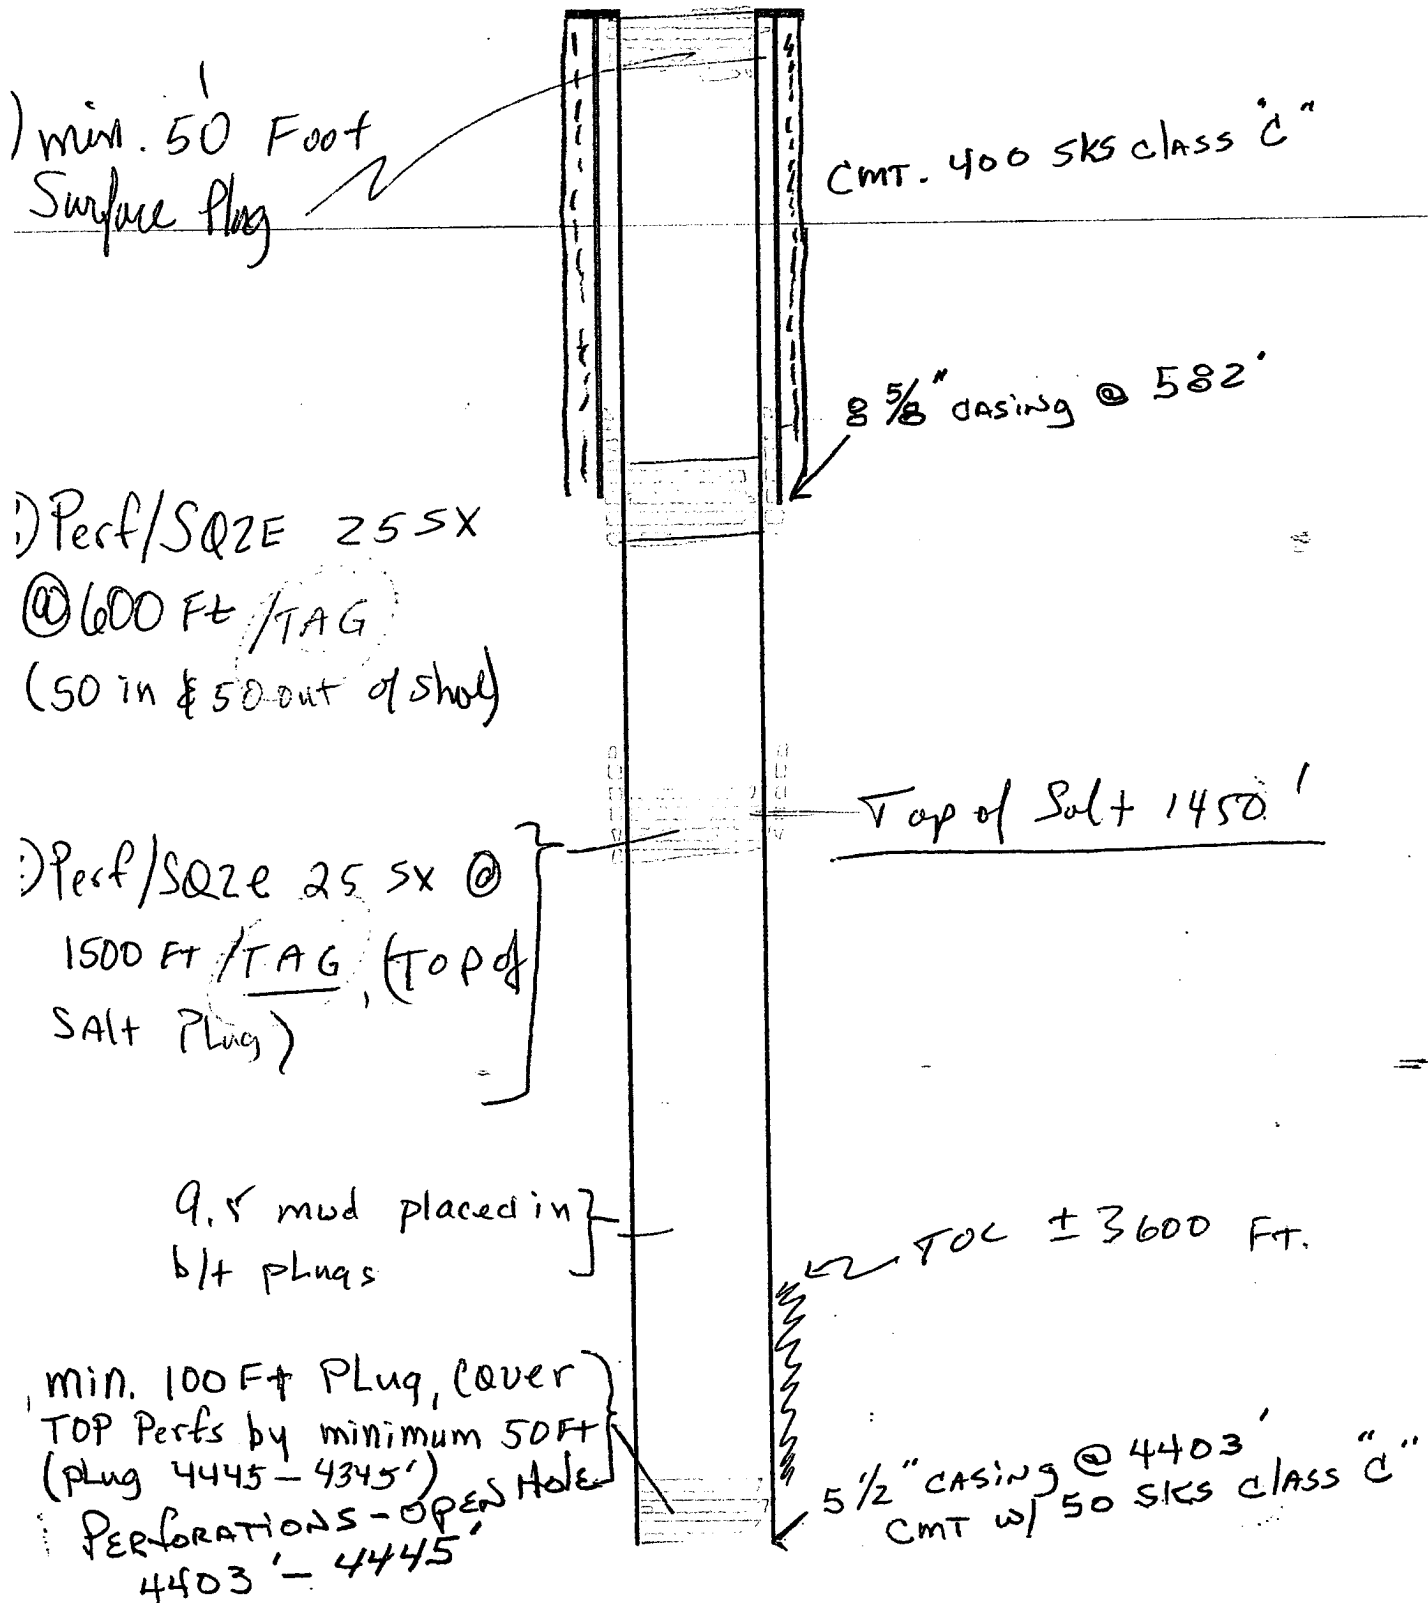 ) min. 50' Foot
Surface Plug
CMT. 400 SKS CLASS "C"
8 5/8" CASING @ 582'
:) Perf/SQZE 25 SX
@ 600 Ft /TAG
(50 in & 50 out of shoe)
Top of Salt 1450'
:) Perf/SQZe 25 SX @
1500 FT /TAG, (TOP of
SALT PLug)
9.5 mud placed in
b/t pLugs
TOC ± 3600 FT.
min. 100 Ft PLug, Cover
TOP Perfs by minimum 50 Ft
(pLug 4445 - 4345')
PERFORATIONS - OPEN Hole
4403' - 4445'
5 1/2" CASING @ 4403'
CMT W/ 50 SKS CLASS "C"